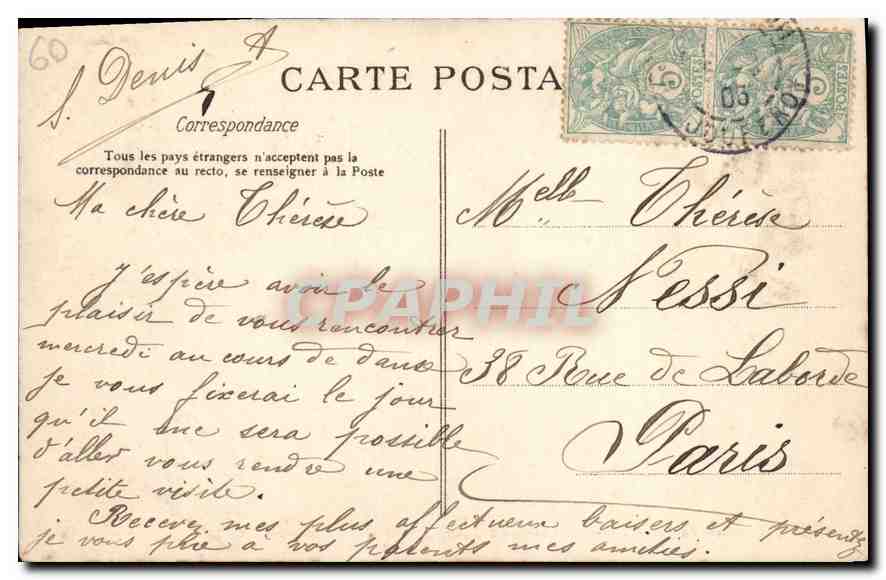 60
S. Denis
CARTE POSTA
Correspondance
Tous les pays étrangers n'acceptent pas la
correspondance au recto, se renseigner à la Poste
Ma chère Thérèse
J'espère avoir le
plaisir de vous rencontrer
mercredi au cours de danse
je vous fixerai le jour
qu'il me sera possible
d'aller vous rendre une
petite visite.
Recevez mes plus affectueux baisers et présentez
je vous prie à vos parents mes amitiés.
5c
POSTES
5c
POSTES
03
Melle Thérèse
Nessi
38 Rue de Laborde
Paris
CPAPHIL